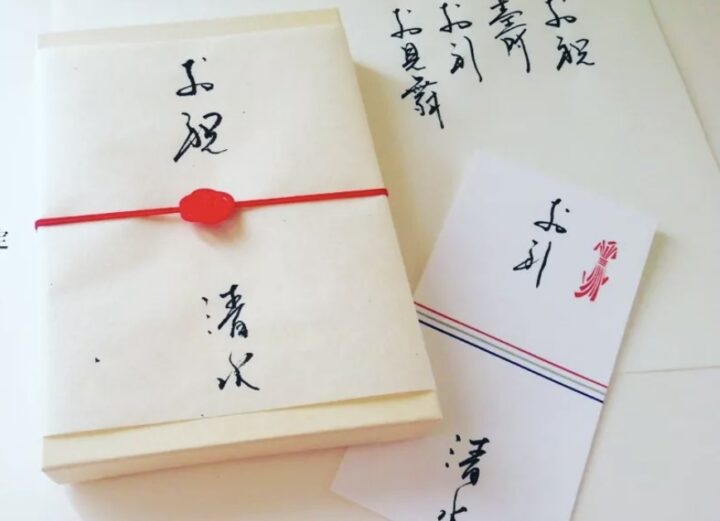 お祝
お礼
お見舞
お祝
清水
お礼
清水